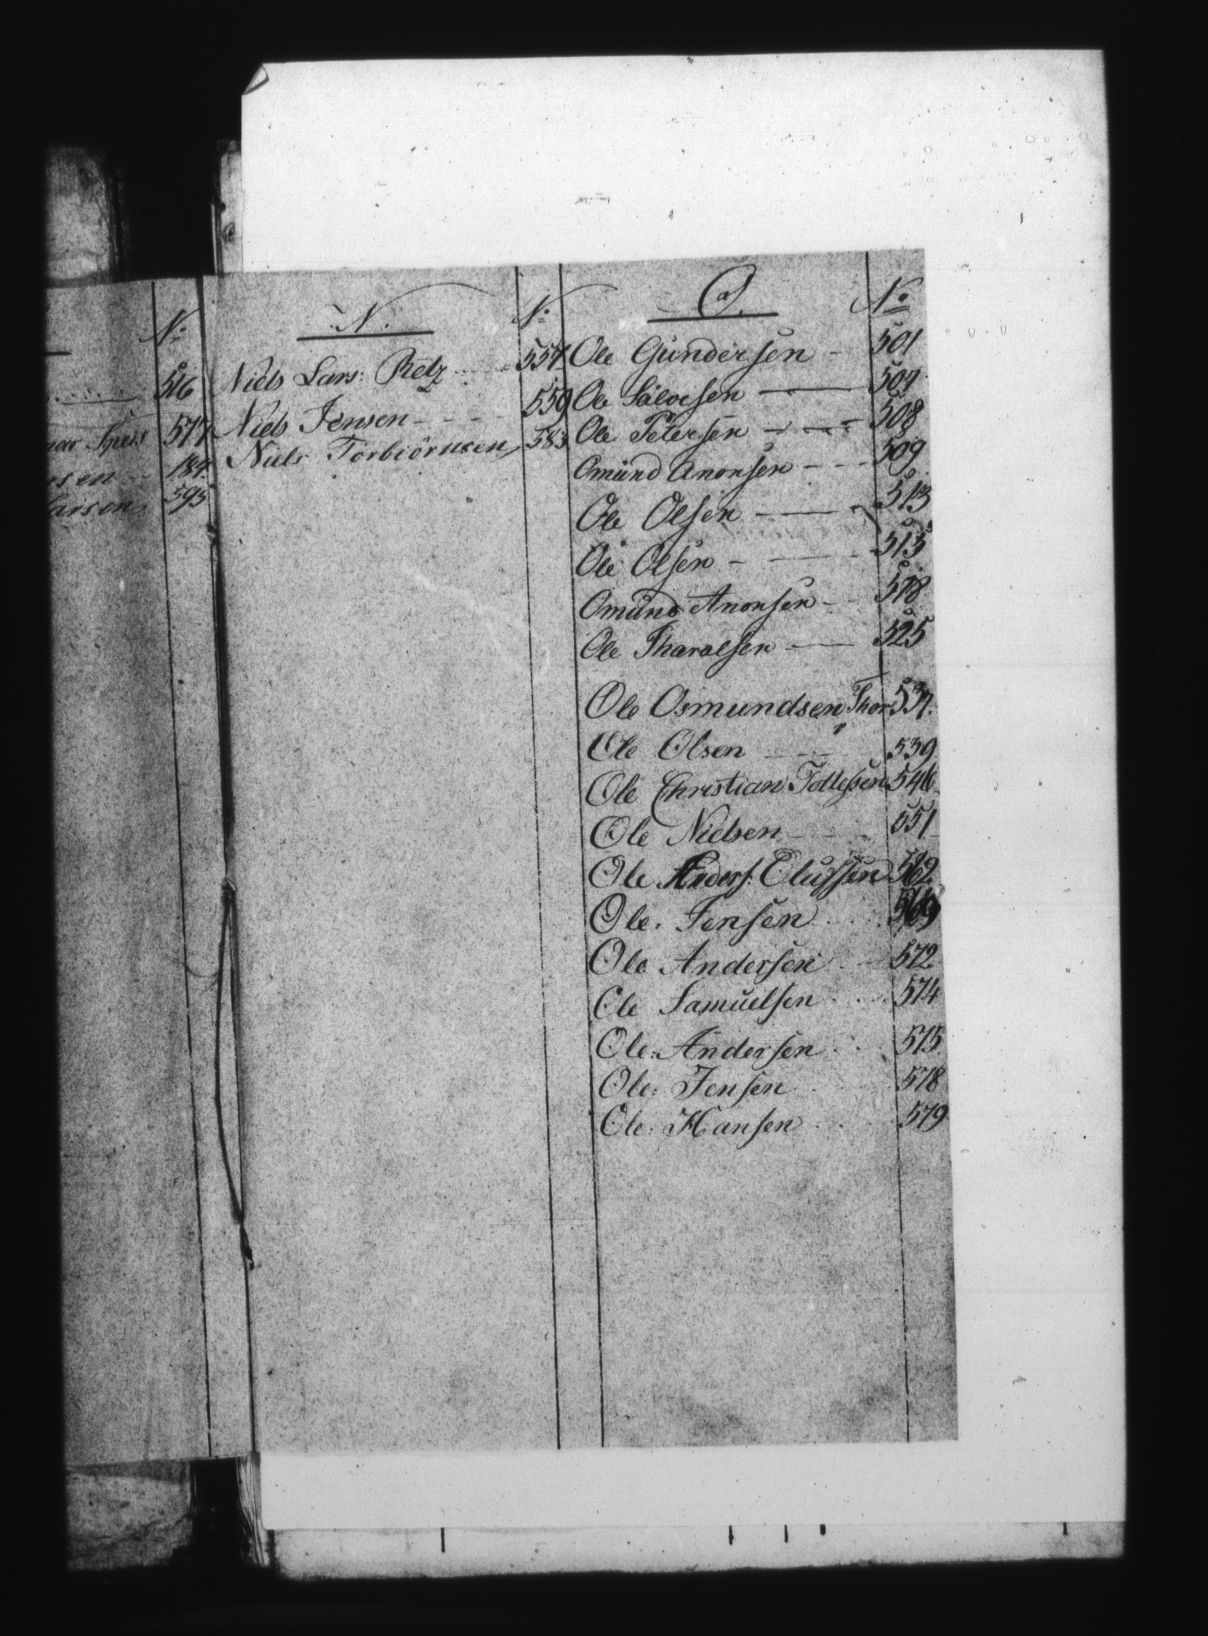 No
516
Speis 517
184
Larsen 595
N. No
Niels Lars: Retz 557
Niels Jensen 559
Niels Torbiörnsen 583
O. No
Ole Gundersen 501
Ole Salvesen 507
Ole Petersen 508
Omund Anonsen 509
Ole Olsen 513
Ole Olsen 515
Omund Anonsen 518
Ole Tharalsen 525
Ole Osmundsen Thor 537.
Ole Olsen 539
Ole Christian Tollefsen 546
Ole Nielsen 551
Ole Anders: Olufsen 562
Ole. Jensen 569
Ole Andersen 572
Ole Samuelsen 574
Ole: Andersen 575
Ole: Jensen 578
Ole: Hansen 579